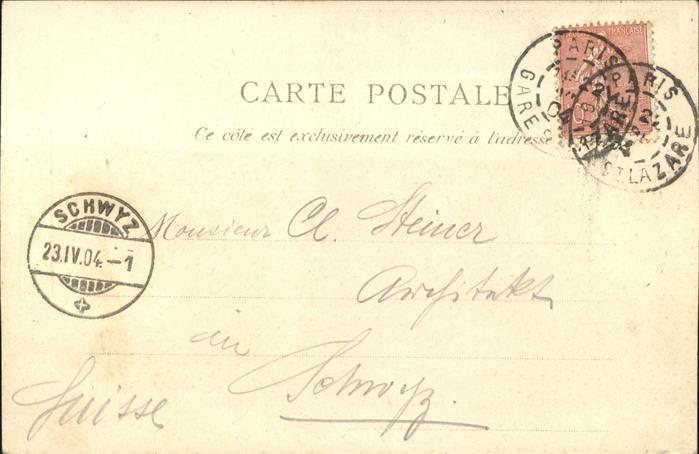 FRANÇAISE
PARIS
22
04
GARE ST LAZARE
PARIS
GARE ST LAZARE
CARTE POSTALE
Ce côté est exclusivement réservé à l'adresse
SCHWYZ
23.IV.04.-1
Monsieur Cl. Steiner
Architekt
in
Schwyz.
Suisse